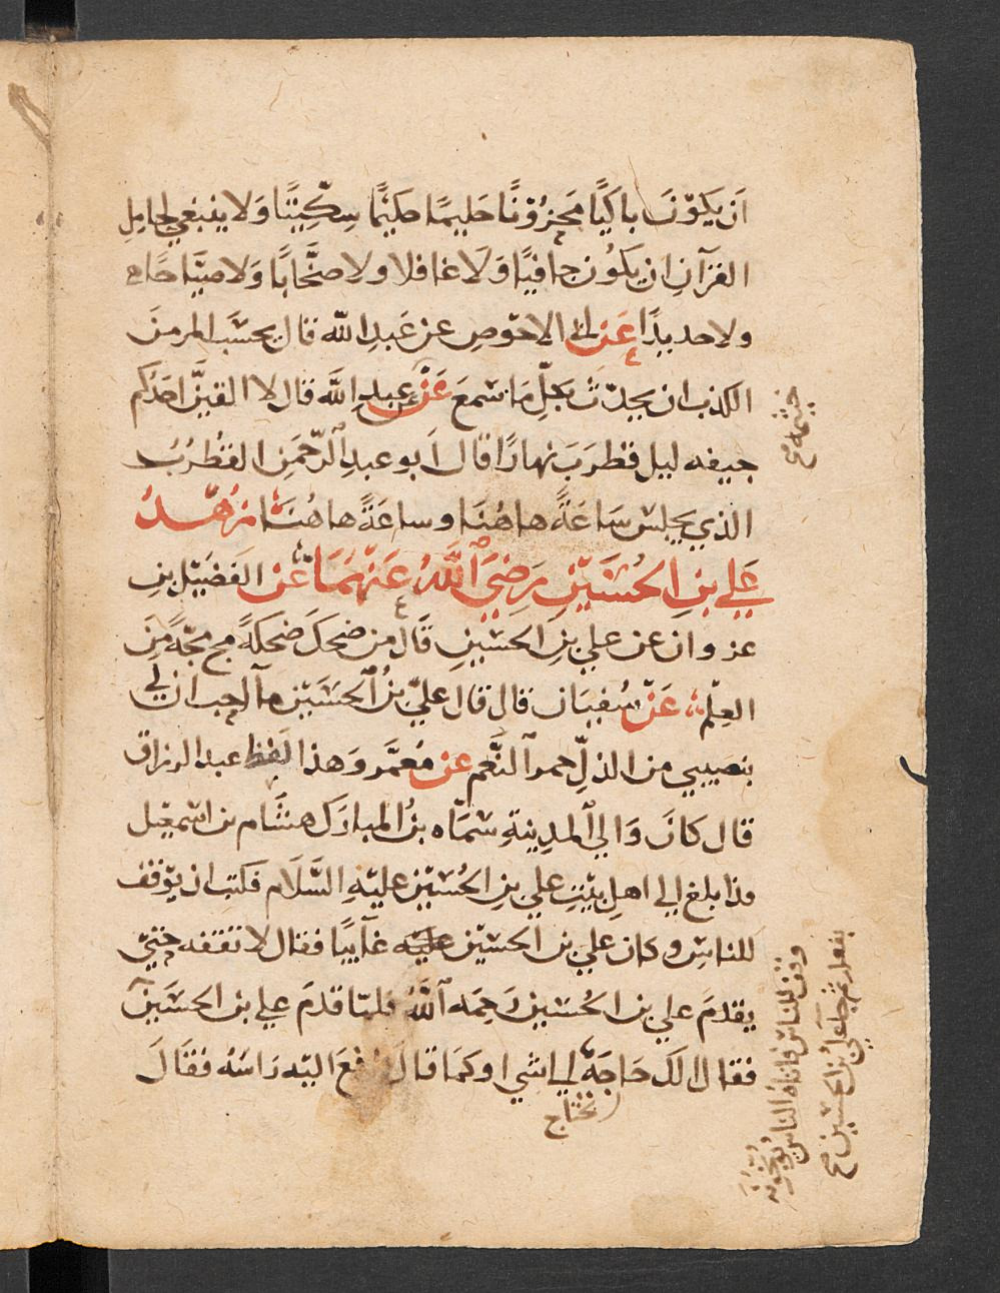 اَن يَكوْنَ باكيًا مَحزُوْنًا حَليمًا حكيْمًا سِكّيتًا وَلا ينبغي لحامِلِ
القرآنِ ان يكوُن جافيًا وَلَا غافلا ولا صخَّابًا وَلا صيَّاحًا
ولا حديدًا عَن ابي الاحوَصِ عن عَبدِ الله قال بحسَبِ المرءِ منَ
الكذب ان يحدّث بكلّ مَا سَمعَ عَنْ عبدِ الله قال لا الفينَّ احَدَكم
جيفه ليل قطرَبَ نهارًا قال اَبو عبدِ الرّحمَنِ القُطْرُبُ
الذي يجلسُ سَاعَةً هاهُنَا وساعَةً هاهُنَا مِن زهْدُ
عَلي بنِ الحُسَيْنِ رَضيَ اللَّهُ عَنهُمَا عَن الفضَيْلِ بنِ
غزوان عن علي بنِ الحسَينِ قَالَ من ضحكَ ضحكَةً مج مجّةً مِنَ
العِلْمِ عَنْ سُفيَان قال قال عليّ بنُ الحسَيْنِ ما احب ان لي
بنصيبي من الذلِّ حمر النَّعم عن مَعمَّر وَهذا لَفظ عبد الرزاق
قال كانَ وَالي المدِينةِ سَمَّاه بنُ المبارَك هشَام بن اسْمعيْل
وذا بلغ الي اهلِ بيْتِ علي بنِ الحُسَيْنِ عليْهِ السَّلَام فكتب ان يوْقف
للناسِ وكان علي بن الحسَيْن غآيبًا فقال لا تقفه حتيّ
يقدمَ علي بن الحُسَين رَحِمَه اللَّهُ فلمّا قدمَ علي بن الحسَيْن
فقال الَك حَاجَةٌ الي شي او كمَا قال فرفعَ اليْه رَاسَهُ فقَالَ
تحْتاج
خيثمة صح
وقف للناس فاتاه الناسُ
بفعله فجا علي بن الحسين صح